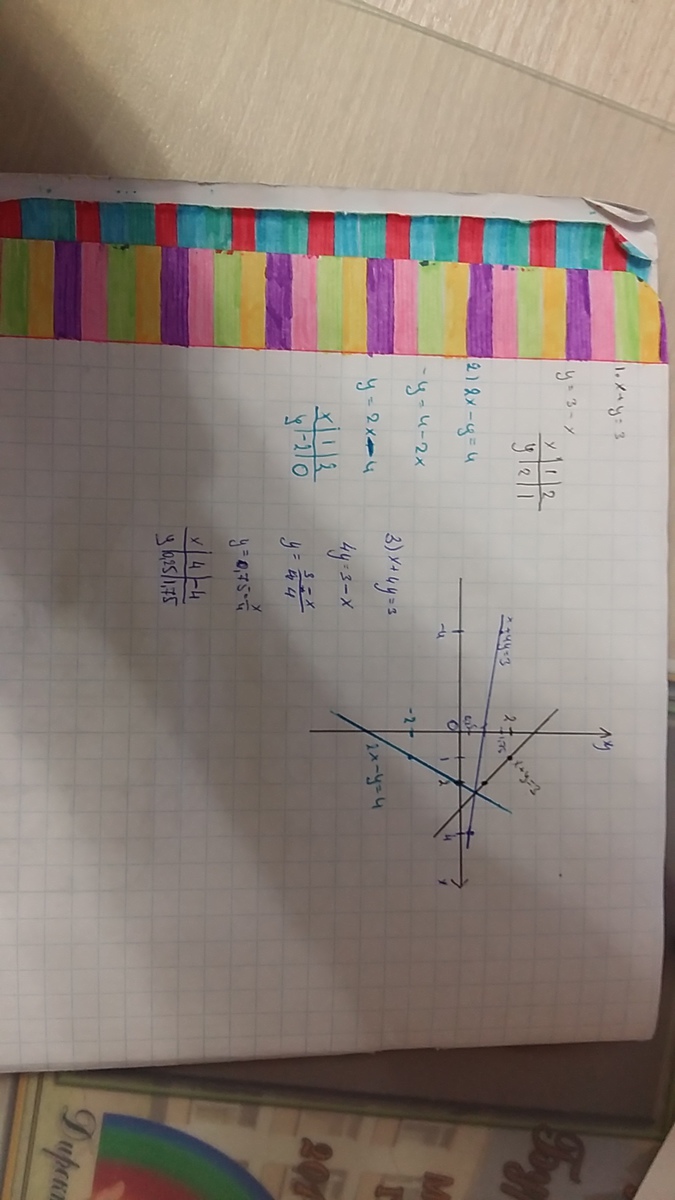 1. x+y=3
y = 3 - x
x | 1 | 2
y | 2 | 1
2) 2x-y=4
-y = 4-2x
y = 2x-4
x | 1 | 2
y | -2 | 0
3) x+4y=3
4y = 3-x
y = 3/4 - x/4
y = 0,75 - x/4
x | 4 | -4
y | 0,25 | 1,75
y
2
1,75
x+y=3
x+4y=3
-4
0
1
2
4
x
-2
2x-y=4